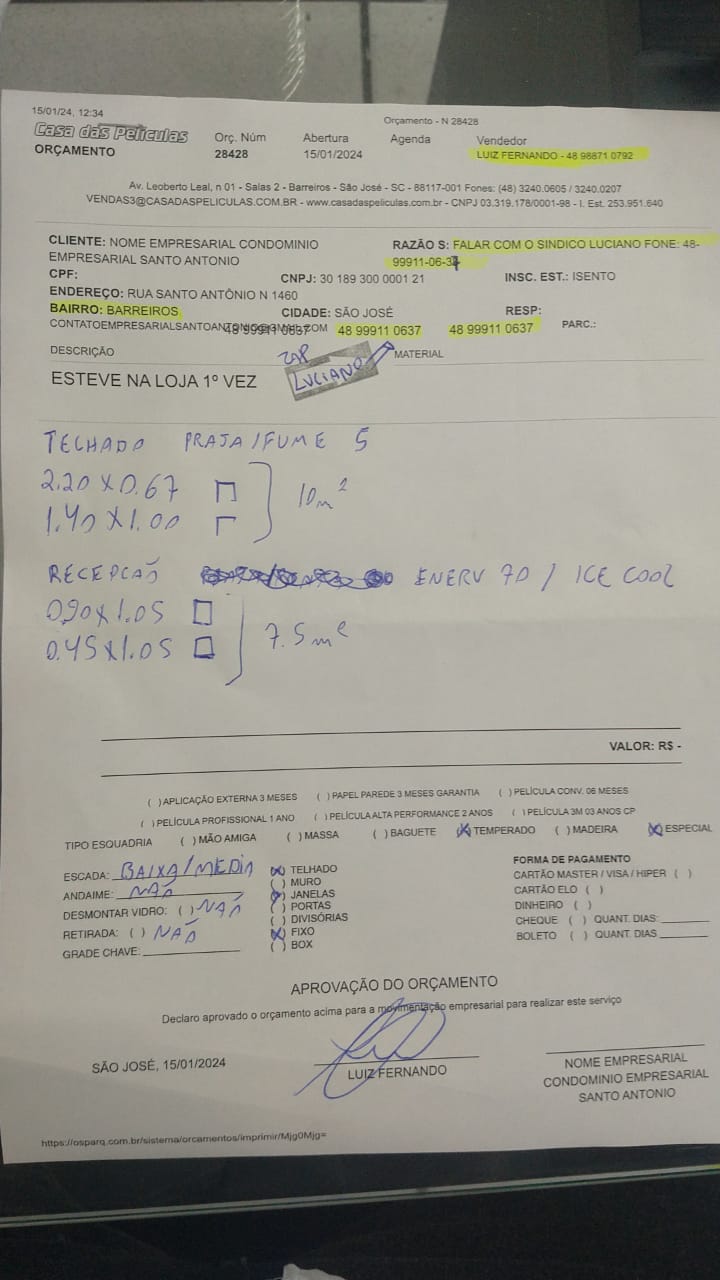 15/01/24, 12:34
Orçamento - N 28428
Casa das Películas
Orç. Núm Abertura Agenda Vendedor
ORÇAMENTO 28428 15/01/2024 LUIZ FERNANDO - 48 98871 0792
Av. Leoberto Leal, n 01 - Salas 2 - Barreiros - São José - SC - 88117-001 Fones: (48) 3240.0605 / 3240.0207
VENDAS3@CASADASPELICULAS.COM.BR - www.casadaspeliculas.com.br - CNPJ 03.319.178/0001-98 - I. Est. 253.951.640
CLIENTE: NOME EMPRESARIAL CONDOMINIO EMPRESARIAL SANTO ANTONIO
RAZÃO S: FALAR COM O SINDICO LUCIANO FONE: 48-99911-06-37
CPF: CNPJ: 30 189 300 0001 21 INSC. EST.: ISENTO
ENDEREÇO: RUA SANTO ANTÔNIO N 1460
BAIRRO: BARREIROS CIDADE: SÃO JOSÉ RESP:
CONTATOEMPRESARIALSANTOANTONIO@GMAIL.COM 48 99911 0637 48 99911 0637 48 99911 0637 PARC.:
DESCRIÇÃO ZAP MATERIAL
ESTEVE NA LOJA 1º VEZ LUCIANO
TECHADO PRAJA/FUME 5
2.20 X 0.67
1.40 X 1.00
10m²
RECEPCÃO ENERV 70 / ICE COOL
0.90 X 1.05
0.45 X 1.05
7.5 m²
VALOR: R$ -
( ) APLICAÇÃO EXTERNA 3 MESES ( ) PAPEL PAREDE 3 MESES GARANTIA ( ) PELÍCULA CONV. 06 MESES
( ) PELÍCULA PROFISSIONAL 1 ANO ( ) PELÍCULA ALTA PERFORMANCE 2 ANOS ( ) PELÍCULA 3M 03 ANOS CP
TIPO ESQUADRIA ( ) MÃO AMIGA ( ) MASSA ( ) BAGUETE (X) TEMPERADO ( ) MADEIRA (X) ESPECIAL
ESCADA: BAIXA/MEDIA
ANDAIME: NÃO
DESMONTAR VIDRO: ( ) NÃO
RETIRADA: ( ) NÃO
GRADE CHAVE:
(X) TELHADO
( ) MURO
(X) JANELAS
( ) PORTAS
( ) DIVISÓRIAS
(X) FIXO
( ) BOX
FORMA DE PAGAMENTO
CARTÃO MASTER / VISA / HIPER ( )
CARTÃO ELO ( )
DINHEIRO ( )
CHEQUE ( ) QUANT. DIAS:
BOLETO ( ) QUANT. DIAS
APROVAÇÃO DO ORÇAMENTO
Declaro aprovado o orçamento acima para a movimentação empresarial para realizar este serviço
SÃO JOSÉ, 15/01/2024
LUIZ FERNANDO
NOME EMPRESARIAL
CONDOMINIO EMPRESARIAL
SANTO ANTONIO
https://osparq.com.br/sistema/orcamentos/imprimir/Mjg0Mjg=